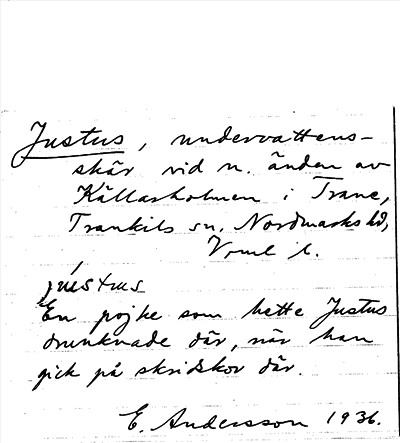 Justus, undervattens-
skär vid n. änden av
Källarholmen i Trane,
Trankils sn, Nordmarks hd,
Vrml l.
En pojke som hette Justus
drunknade där, när han
gick på skridskor där.
E. Andersson 1936.